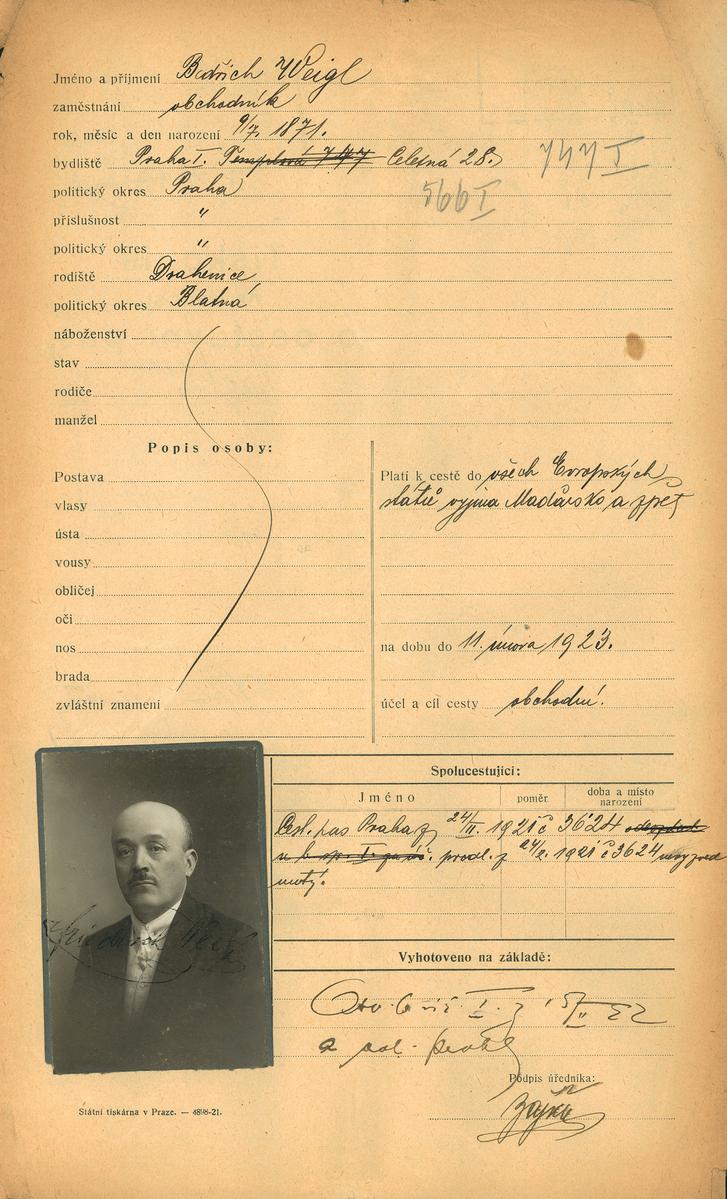 Jméno a příjmení Bedřich Weigl
zaměstnání obchodník
rok, měsíc a den narození 9/7. 1871.
bydliště Praha I. Templová 747 Celetná 28. 747 I
politický okres Praha 566 I
příslušnost "
politický okres "
rodiště Drahenice
politický okres Blatná
náboženství
stav
rodiče
manžel
Popis osoby:
Postava
vlasy
ústa
vousy
obličej
oči
nos
brada
zvláštní znamení
Platí k cestě do všech Evropských
států vyjma Maďarsko a zpět
na dobu do 11. února 1923.
účel a cíl cesty obchodní.
Spolucestující:
Jméno poměr doba a místo
narození
Cest. pas Praha z 24/II. 1921 č 3624
prodl. z 1921 č 3624
Friedrich Weigl
Vyhotoveno na základě:
I. z 15/II 22
a pol.
Podpis úředníka:
Státní tiskárna v Praze. — 4898-21.